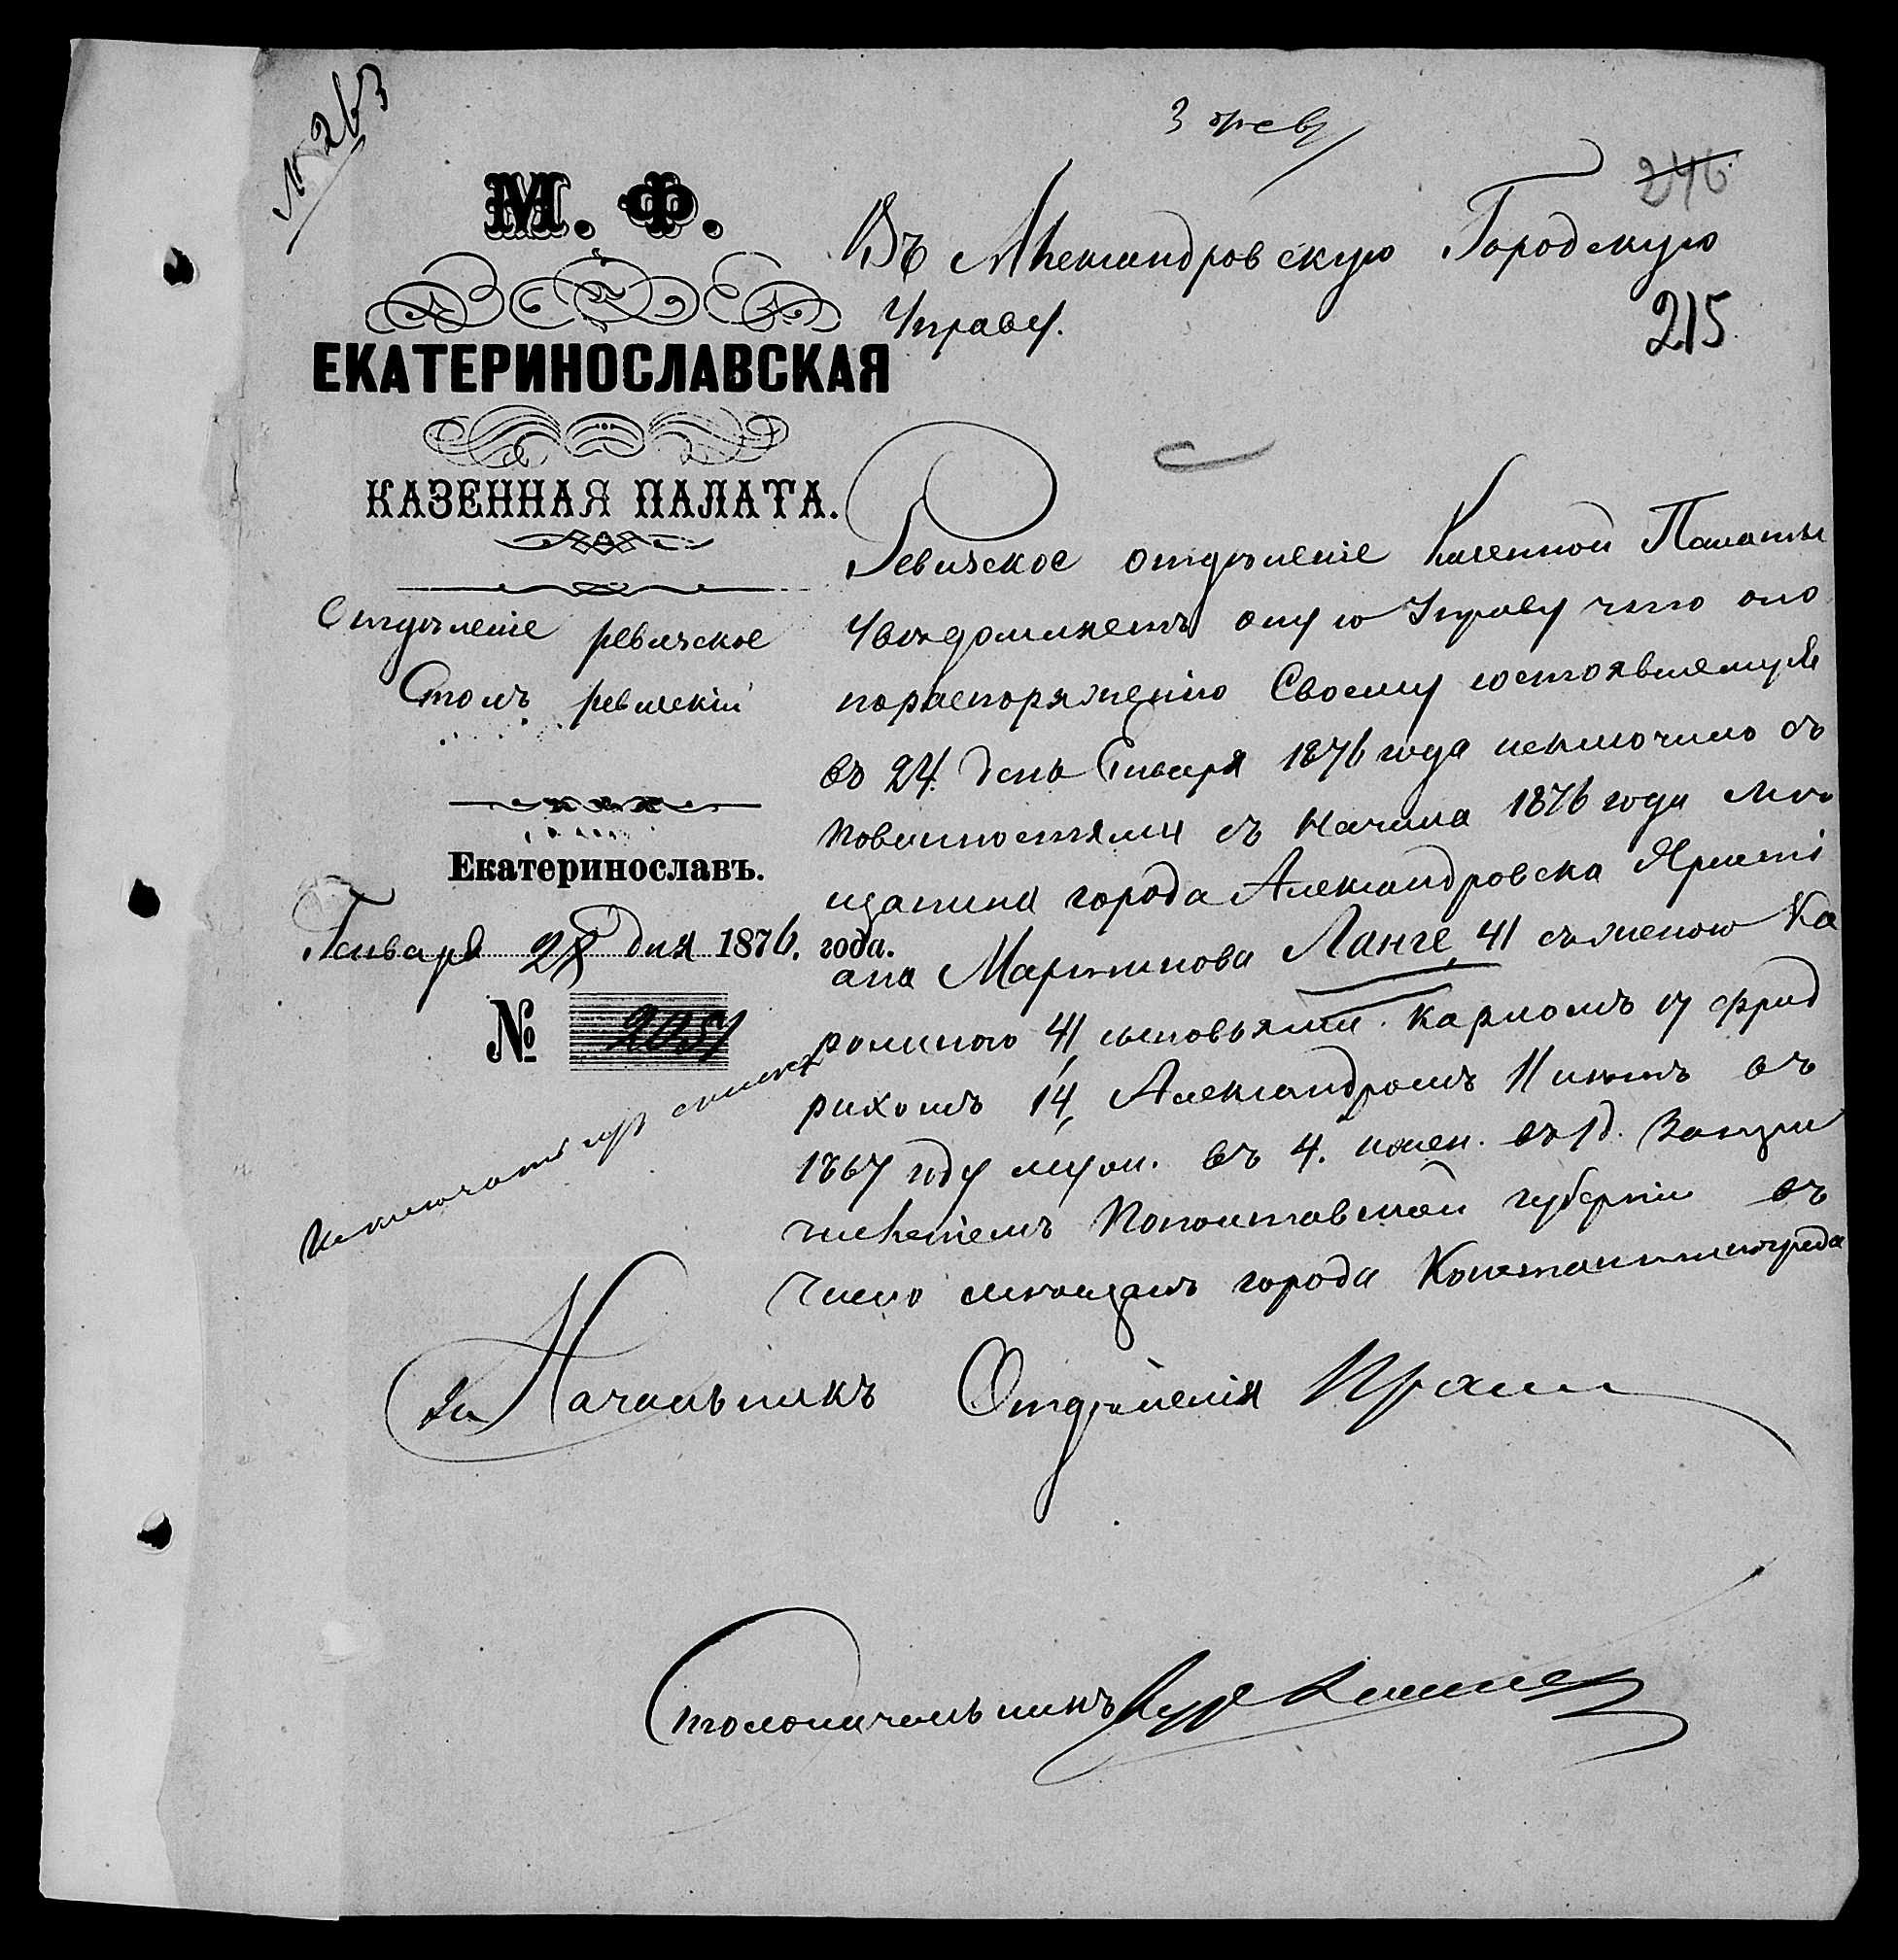 № 263
3 февр
246
М. Ф.
Въ Александровскую Городскую
Управу.
215
ЕКАТЕРИНОСЛАВСКАЯ
КАЗЕННАЯ ПАЛАТА.
Отдѣленіе ревизское
Столъ ревизскій
Екатеринославъ.
Января 28 дня 1876. года.
№ 2051
Ревизское отдѣленіе Казенной Палаты
увѣдомляетъ оную Управу что оно
по распоряженію Своему состоявшемуся
въ 24 день Генваря 1876 года исключило съ
повинностями съ начала 1876 года мѣ
щанина города Александровска Христі
ана Мартинова Ланге, 41 съ женою Ка
ролиною 41, сыновьями Карломъ 17 Фрид
рихомъ 14, Александромъ 11 лѣтъ въ
1867 году муж. въ 4. жен. въ 1 д. За пере
численіемъ Полтавской губерніи въ
число мѣщанъ города Константинограда
Исключить изъ списка
За Начальникъ Отдѣленія
Столоначальникъ